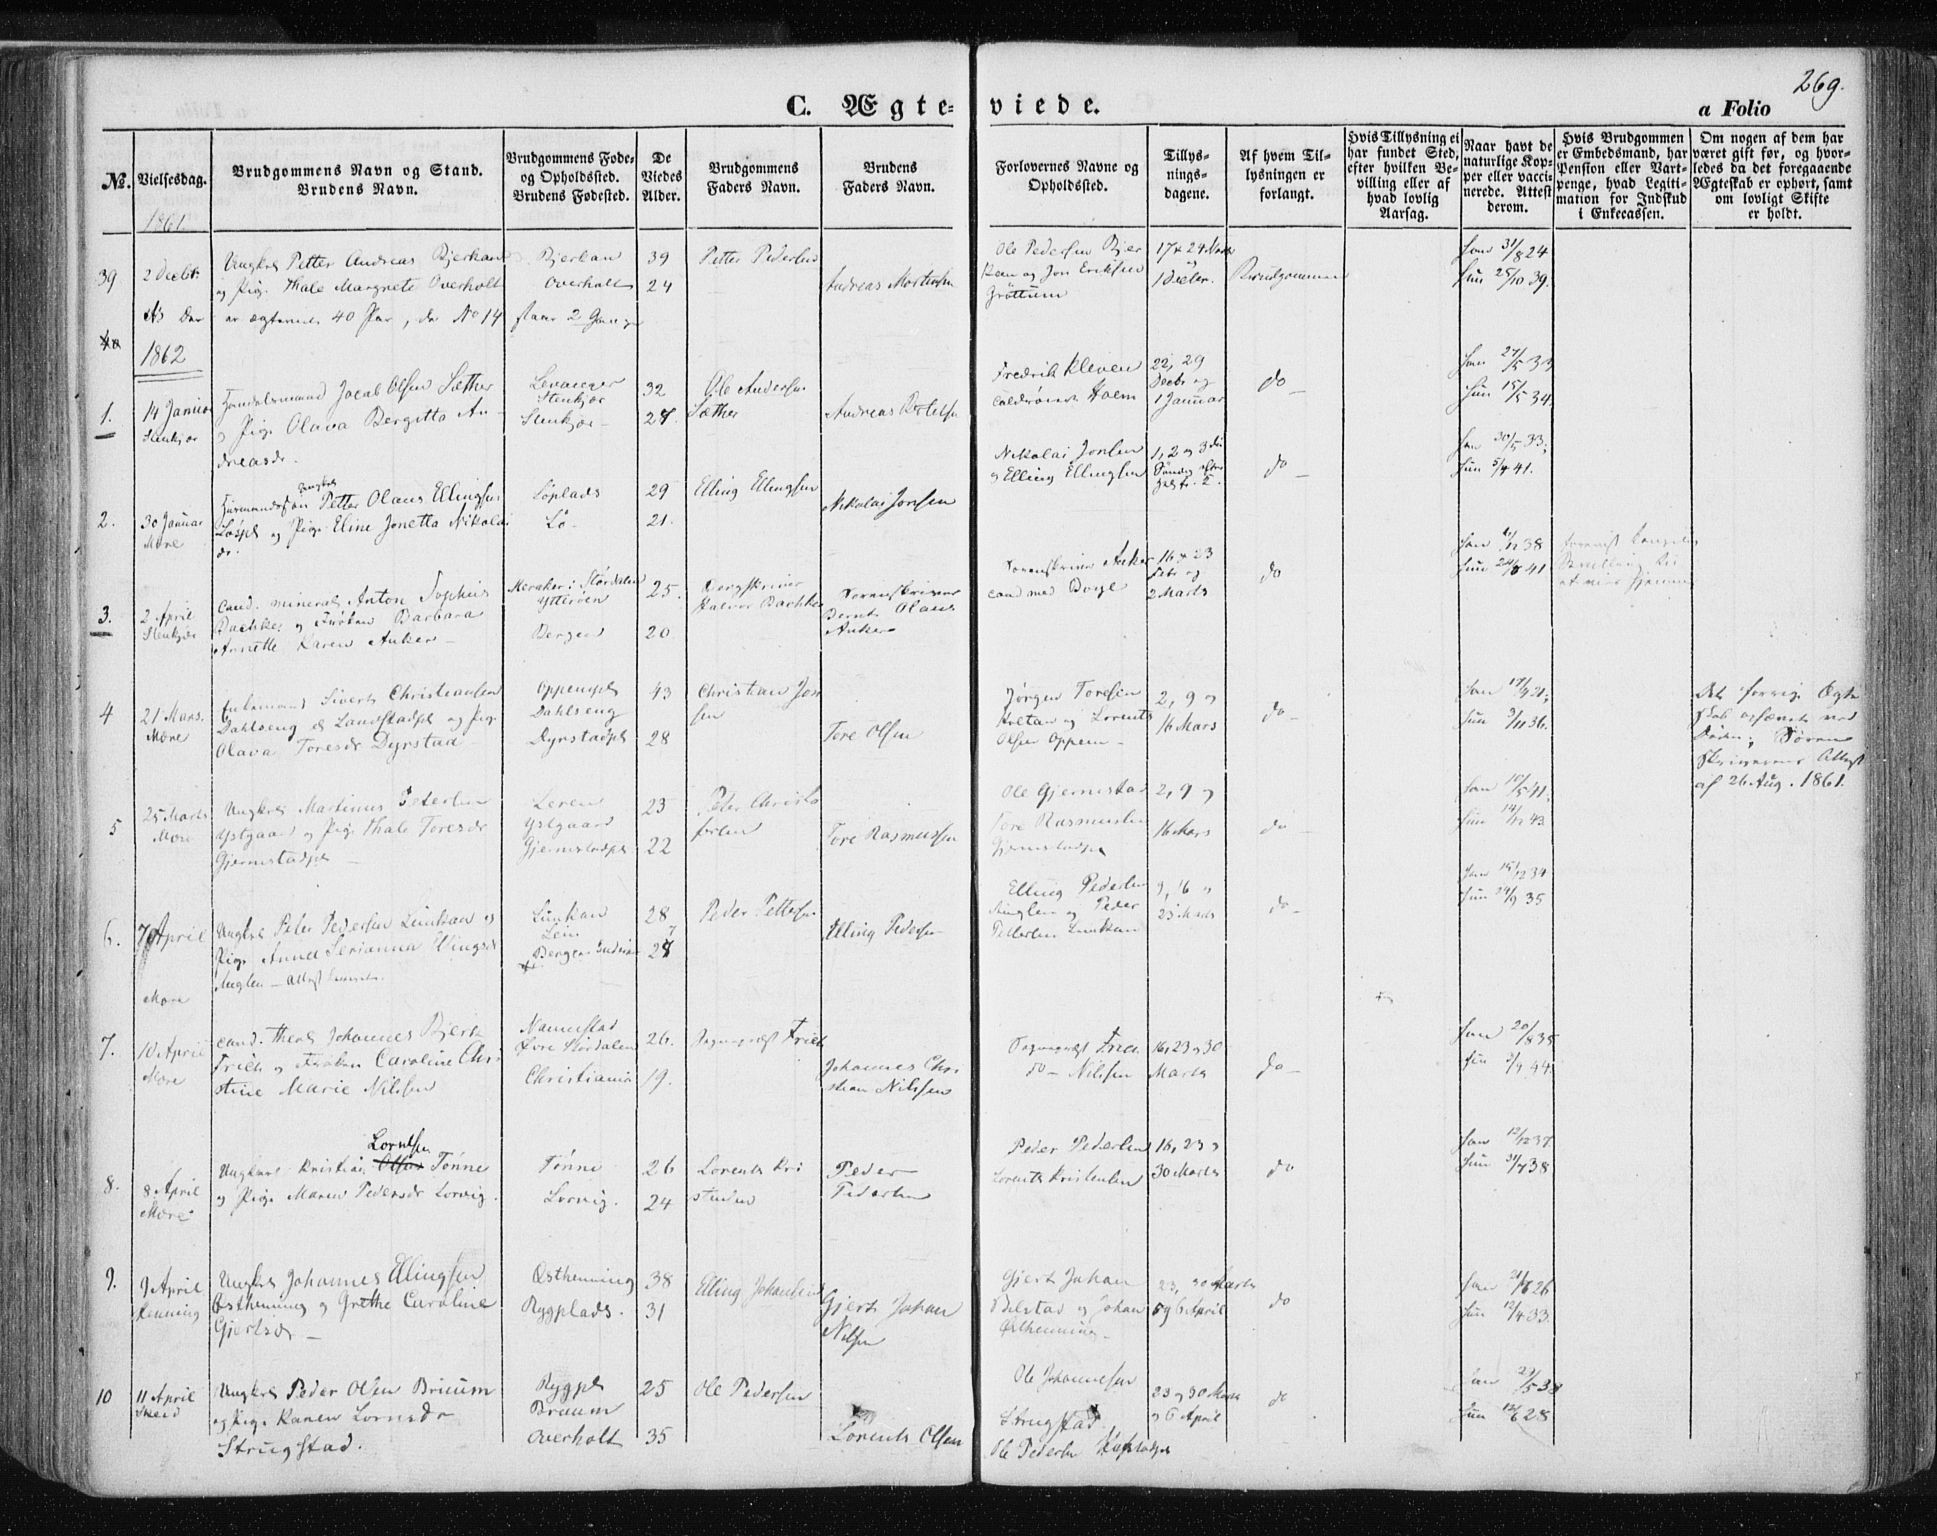 269.
C. Ægte-
viede.
a Folio
№.
Vielsesdag.
Brudgommens Navn og Stand.
Brudens Navn.
Brudgommens Føde-
og Opholdssted.
Brudens Fødested.
De
Viedes
Alder.
Brudgommens
Faders Navn.
Brudens
Faders Navn.
Forlovernes Navne og
Opholdssted.
Tillys-
nings-
dagene.
Af hvem Til-
lysningen er
forlangt.
Hvis Tillysning ei
har fundet Sted,
efter hvilken Be-
villing eller af
hvad lovlig
Aarsag.
Naar havt de
naturlige Kop-
per eller vacci-
nerede. Attest
derom.
Hvis Brudgommen
er Embedsmand, har
Pension eller Vart-
penge, hvad Legiti-
mation for Indskud
i Enkecassen.
Om nogen af dem har
været gift før, og hvor-
ledes da det foregaaende
Ægteskab er ophørt, samt
om lovligt Skifte
er holdt.
1861.
39
2 Decbr
Ungkrl Petter Andreas Bjerkan
og Pige Thale Margrete Overholt
Bjerkan
Overholt
39
24
Petter Pedersen
Andreas Mortensen
Ole Pedersen Bjer
kan og Jon Eriksen
Grøttum
17 & 24 Novb
og
1 Decbr.
Brudgommen
Han 31/8 24
Hun 25/10 39.
Der er ægteviede 40 Par, da No 14 staar 2 Gange
40
1862
1.
14 Januar
Stenkjær
Handelsmand Jacob Olsen Sæther
og Pige Olava Bergitta An-
dreasdr.
Levanger
Stenkjær
Stenkjær
32
28
Ole Andersen
Sæther
Andreas
Fredrik Kleven
Holm
22, 29
Decbr og
1 Januar
do
Han 27/5
Hun 15/5 34.
2.
30 Januar
Mære
Ungkrl
Petter Olaus Ellingsen
Løspl og Pige Eline Jonetta Nikolai
dr.
Løplads
Lø
29
21.
Elling Ellingsen
Nikolai Jonsen
Nikolai Jonsen
og Elling Ellingsen
1, 2 og 3die
Søndag efter
do
Han 30/5 33.
Hun 5/4 41.
3.
2 April
Stenkjær
Cand. mineral. Anton Sophus
Bachke og Frøken Barbara
Annette Karen Anker
Meraker i Størdalen
Ytterøen
Bergen
25.
20
Bergskriver
Halvor Bachke
Sorenskriver
Bernt Olaus
Anker
Sorenskriver Anker
cand med
16 & 23
Febr og
2 Marts
do
Han 38
Hun 41
4
21 Mars.
Mære
Enkemand Sivert Christiansen
Dahlseng og Pige
Olava Toresdr Dyrstad
Oppempl
Dahlseng
Dyrstadpl
43
28
Christian Jon
sen
Tore Olsen
Jørgen Toresen
og Lorents
Olsen Oppem
2, 9 og
16 Mars
do
Han 21.
Hun 3/11 36.
Det forrige Ægte
skab ophævet ved
Døden; Soren
skriverens Attest
af 26 Aug. 1861.
5
25 Marts
Mære
Ungkrl Martinus Petersen
Ystgaard og Pige Thale Toresdr
Gjermstadpl
Leren
Ystgaard
Gjermstadpl
23
22
Peter Christo
fersen
Tore Rasmussen
Ole Gjermstad
Tore Rasmussen
Gjermstadpl
2, 9 og
16 Mars
do
Han 10/5 41.
Hun 14/12 43.
6.
7 April
Mære
Ungkrl Peter Pedersen Lunkan og
Pige Anne Serianna Ellingsdr
Lunkan
Lein
28
27
Peder Pettersen
Elling Pedersen
Elling Pedersen
og Peder
Pettersen Lunkan
9, 16 og
23 Marts
do
Han 15/12 34
Hun 24/9 35
7.
10 April
Mære
Cand. Theol Johannes Bjerk
Frich og Frøken Caroline Chri
stine Marie Nilsen
Namsstad
Øvre Størdalen
Christiania
26.
19.
Sogneprest Frich
Johannes Chri
stian Nilsen
Sogneprest Frich
do — Nilsen
16, 23 og 30
Marts
do
Han 20/8 35
Hun 44.
8.
8 April
Mære
Lorntsen
Ungkarl Kristian Olsen Tønne
og Pige Maren Pedersdr Lorvig.
Tønne
Lorvig.
26
24
Lorents Kri
stensen
Peder
Pedersen
Peder Pedersen
Lorents Kristensen
16, 23 og
30 Marts
do
Han 12/12 37
Hun 38
9.
9 April
Henning
Ungkrl Johannes Ellingsen
Østhenning og Grethe Caroline
Gjertsdr
Østhenning
Rygplads.
38
31
Elling Johansen
Gjert Johan
Nilsen
Gjert Johan
og Johan
Østhenning
23, 30 Marts
og 6 April
do
Han 26
Hun 12/4 33.
10
11 April
Skeid
Ungkrl Peder Olsen Bruum
og Pige Karen Lorntsdr
Strugstad.
Rygpl
Bruum
Overholt
25
35
Ole Pedersen
Lorents Olsen
Ole Johannesen
Strugstad
Ole Pedersen
23 og 30 Marts
og 6 April
do
Han 29/5 38
Hun 12/6 28